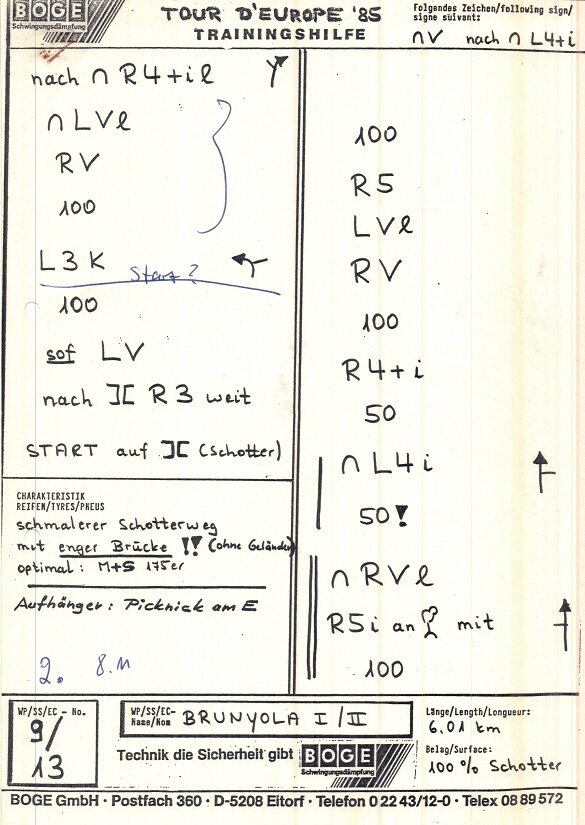 BOGE
Schwingungsdämpfung
TOUR D'EUROPE '85
TRAININGSHILFE
Folgendes Zeichen/following sign/
signe suivant:
∩V nach ∩ L4+i
nach ∩ R4+il
∩ LVl
RV
100
L3K
Start?
100
sof LV
nach ][ R3 weit
START auf ][ (Schotter)
CHARAKTERISTIK
REIFEN/TYRES/PNEUS
schmalerer Schotterweg
mit enger Brücke !! (ohne Geländer)
optimal: M+S 175er
Aufhänger: Picknick am E
2. 8.11
100
R5
LVl
RV
100
R4+i
50
∩ L4i
50!
∩ RVl
R5i an mit
100
WP/SS/EC - No.
9/
13
WP/SS/EC-
Name/Nom BRUNYOLA I/II
Technik die Sicherheit gibt
BOGE
Schwingungsdämpfung
Länge/Length/Longueur:
6.01 km
Belag/Surface:
100 % Schotter
BOGE GmbH · Postfach 360 · D-5208 Eitorf · Telefon 0 22 43/12-0 · Telex 08 89 572